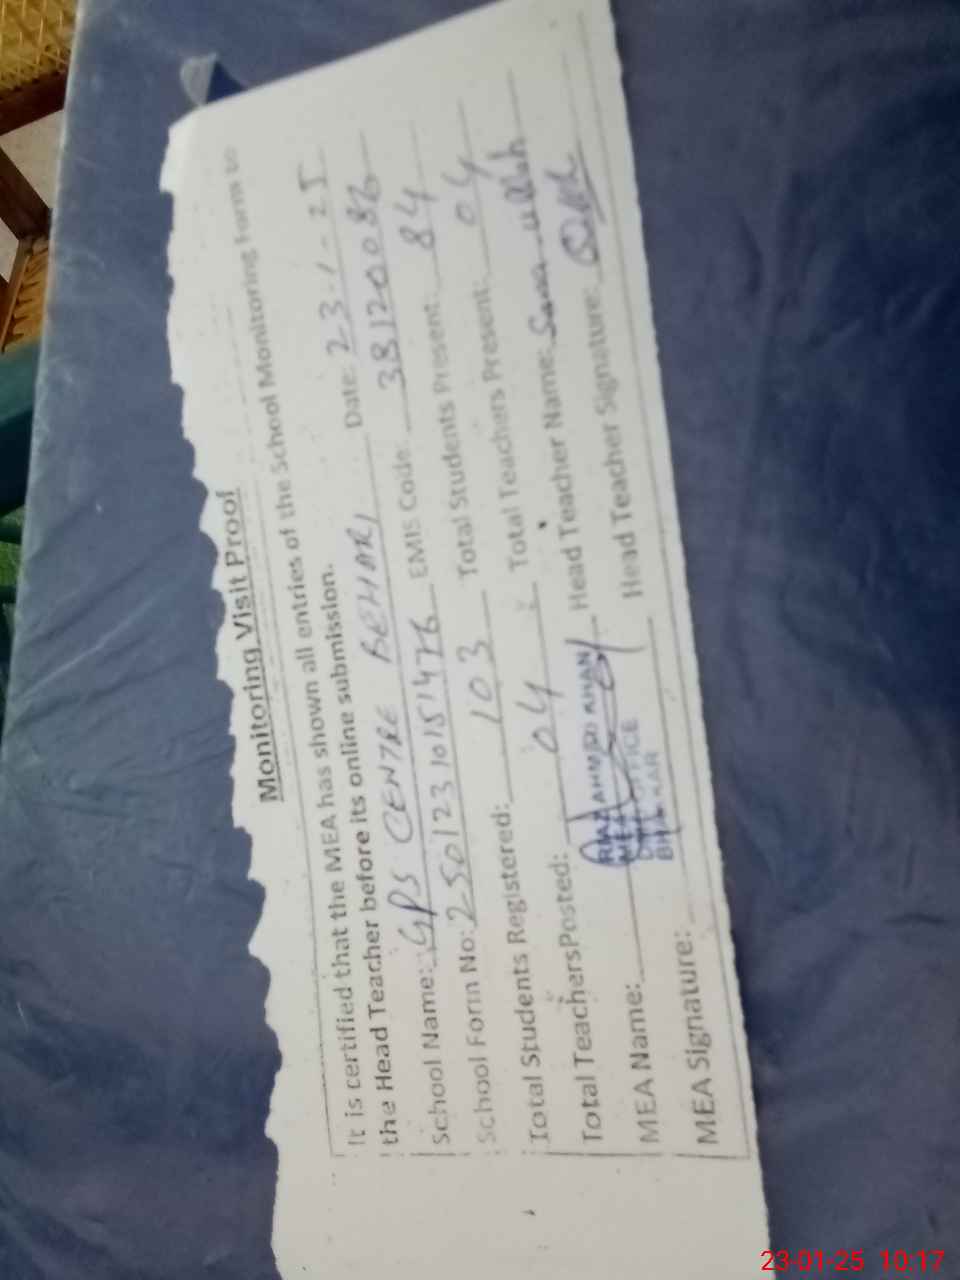 Monitoring Visit Proof
It is certified that the MEA has shown all entries of the School Monitoring Form to
the Head Teacher before its online submission.
School Name: GPS CENTRE BEHARI Date: 23-1-25
School Form No: 25012310151476 EMIS Code: 38120086
Total Students Registered: 103 Total Students Present: 84
Total Teachers Posted: 04 Total Teachers Present: 04
MEA Name: AHMED KHAN Head Teacher Name: Sana ullah
MEA OFFICE
BHAKKAR
MEA Signature: Head Teacher Signature:
23-01-25 10:17